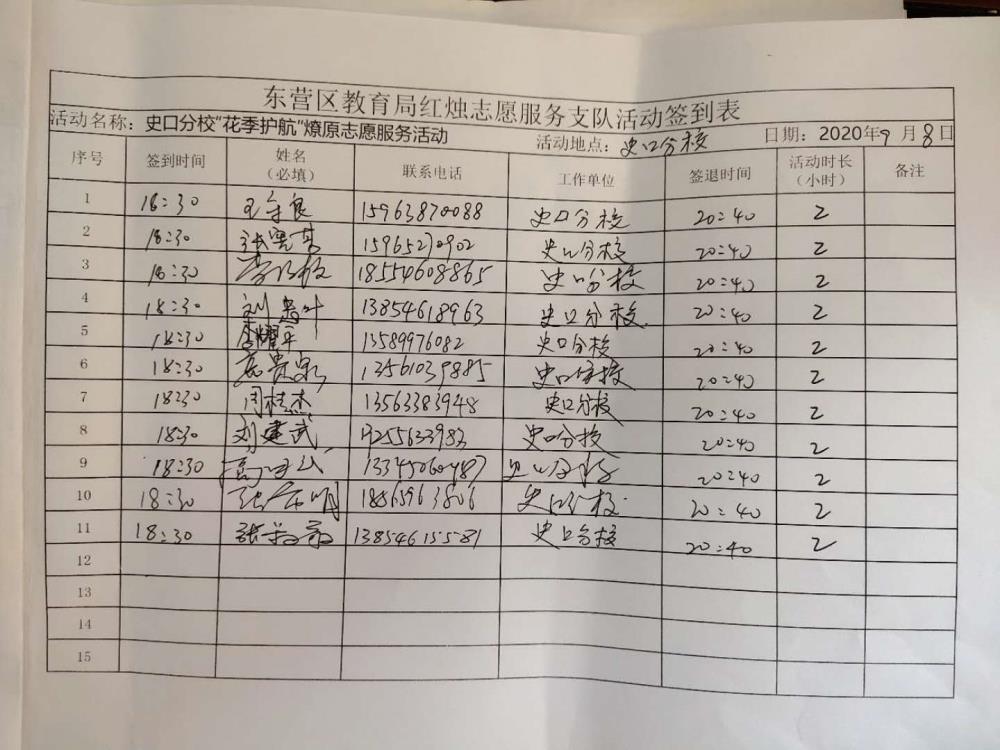 东营区教育局红烛志愿服务支队活动签到表
活动名称：史口分校“花季护航”燎原志愿服务活动 活动地点：史口分校 日期：2020年9月8日
序号 签到时间 姓名（必填） 联系电话 工作单位 签退时间 活动时长（小时） 备注
1 18:30 15963870088 史口分校 20:40 2
2 18:30 张 15965270902 史口分校 20:40 2
3 18:30 李 18554608865 史口分校 20:40 2
4 18:30 刘 叶 13854618963 史口分校 20:40 2
5 18:30 李耀平 13589976082 史口分校 20:40 2
6 18:30 庞贵泉 13561039885 史口分校 20:40 2
7 18:30 周桂杰 13563383948 史口分校 20:40 2
8 18:30 刘建武 史口分校 20:40 2
9 18:30 史口分校 20:40 2
10 18:30 张 明 史口分校 20:40 2
11 18:30 张 13854615581 史口分校 20:40 2
12
13
14
15